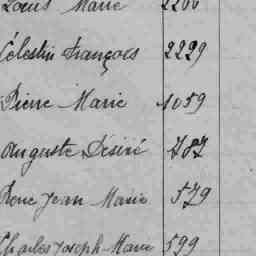 Louis Marie 2200
Célestin François 2229
Pierre Marie 1059
Auguste Désiré 487
Rene Jean Marie 579
Charles Joseph Marie 599